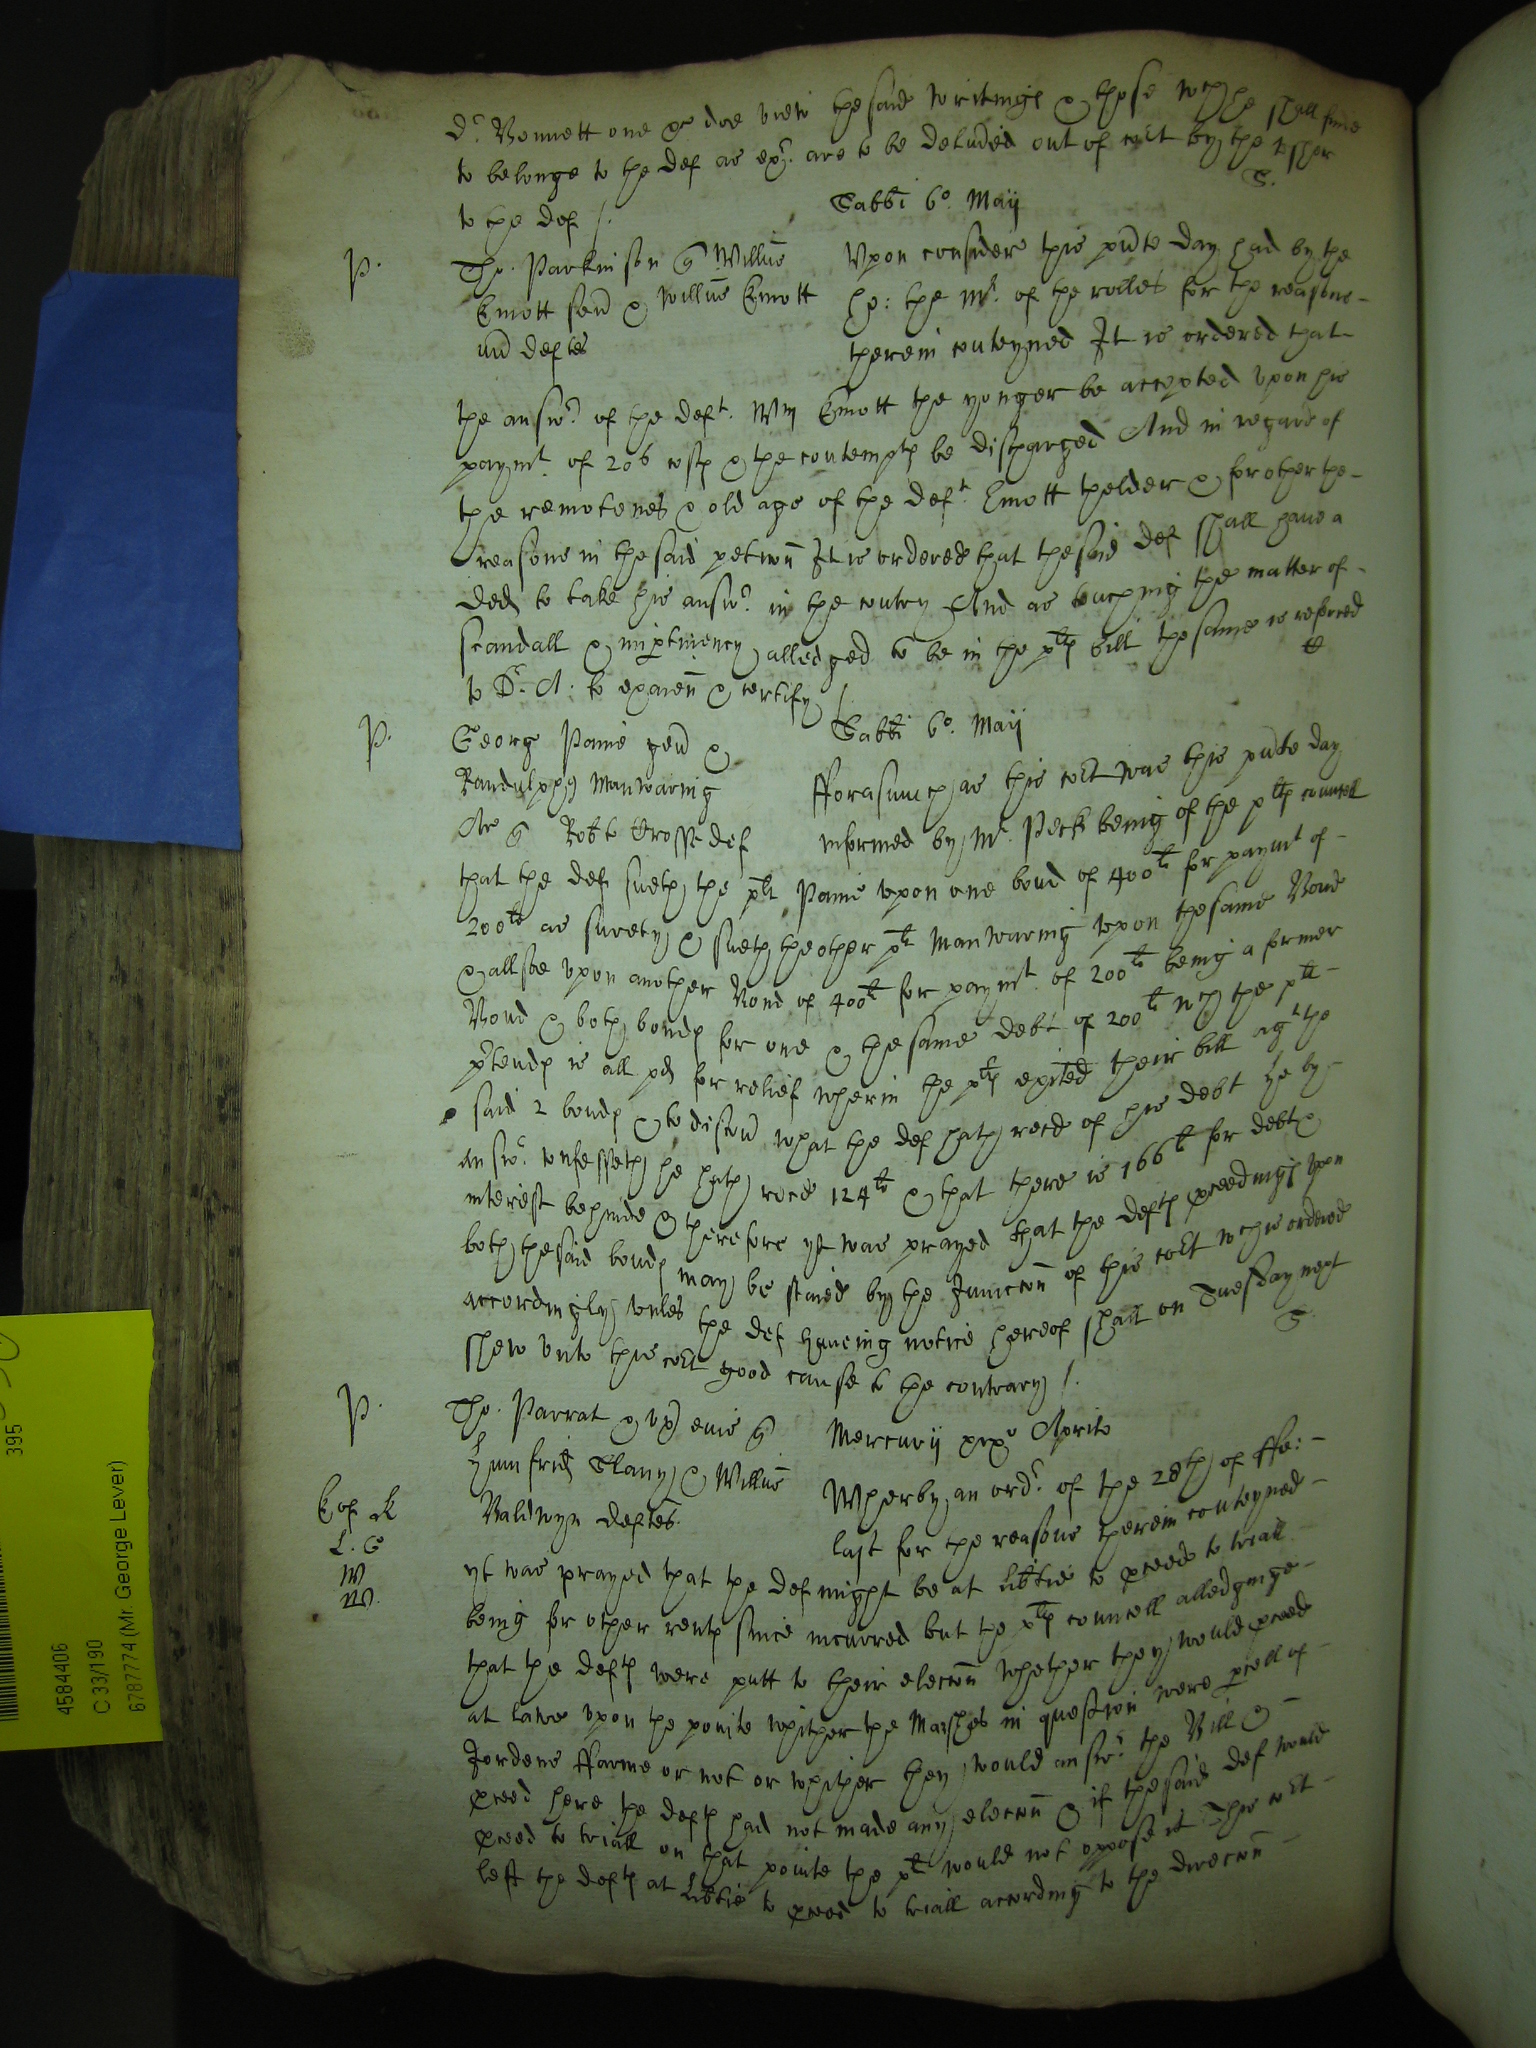 Dr. Bennett one &c doe view the said writings & those wch he shall finde
to belonge to the def as exr. are to be deliu̅ed out of cort by the vsher
to the def /.
S.
Sabbti 6o. Maij
P.
Tho. Parkinson Willus
Emott sen̅ & Willus Emott
iun̅ deftes
Vpon consider this pn̅te day had by the
ho: the Mr. of the rolles for the reasons
therein conteyned It is ordered that
the answr. of the deft. Wm Emott the yonger be accepted vpon his
paymt. of 20s costs & the contempts be discharged And in regard of
the remotenes & old age of the deft. Emott thelder & for other the
reasons in the said peticon̅ It is ordered that the said def shall haue a
ded to take his answr. in the contry And as touching the matter of
scandall & imp̱tinency alledged to be in the plts bill the same is referred
to Dr. A: to examen̅ & certify /
P.
Georg Paine gen̅ &
Randulphus Manwaring
Ar Robte Crosse def
Sabbti 6o. Maij
fforasmuch as this cort was this pn̅te day
informed by Mr. Peck being of the plts councell
that the def sueth the plt Paine vpon one bond of 400li for paymt of
200li as surety & sueth the other plt Manwaring vpon the same Bond
& allsoe vpon another Bond of 400li for paymt. of 200li being a former
Bond & both bonds for one & the same debt of 200li wch the plt
p̱tends is all pd for relief wherin the plts exited their bill agt the
said 2 bonds & to discou̅ what the def hath recd of his debt he by
answr. confesseth he hath recd 124li & that there is 166li for debt &
interest behinde & therefore yt was prayed that the defts p̱ceedings vpon
both the said bonds may be staied by the Iniunccon̅ of this cort wch is ordered
accordingly vnles the def haueing notice hereof shall on Tuesday next
shew vnto this cort good cause to the contrary /.
S.
P.
Tho. Parrat & vx̅ eius
Humfrid Slany & Willus
Baldwyn deftes.
Mercurij xixo Aprilis
L. C
W
W.
Wherby an ordr. of the 28th of ffe:
last for the reasons therein conteyned
yt was prayed that the def might be at lib̅tie to p̱ceed to triall
being for other rents since incurred but the plts councell alledginge
that the defts were putt to their eleccon̅ whether they would p̱ceed
at lawe vpon the pointe whither the Marshes in question were p̱cell of
Jordens ffarme or not or whither they would answr. the Bill &
p̱ceed here the defts had not made any eleccon̅ & if the said def would
p̱ceed to triall on that pointe the plt would not oppose it This cort
left the defts at lib̅tie to p̱ceed to triall according to the direccon̅
395
4584406
C 33/190
6787774 (Mr. George Lever)